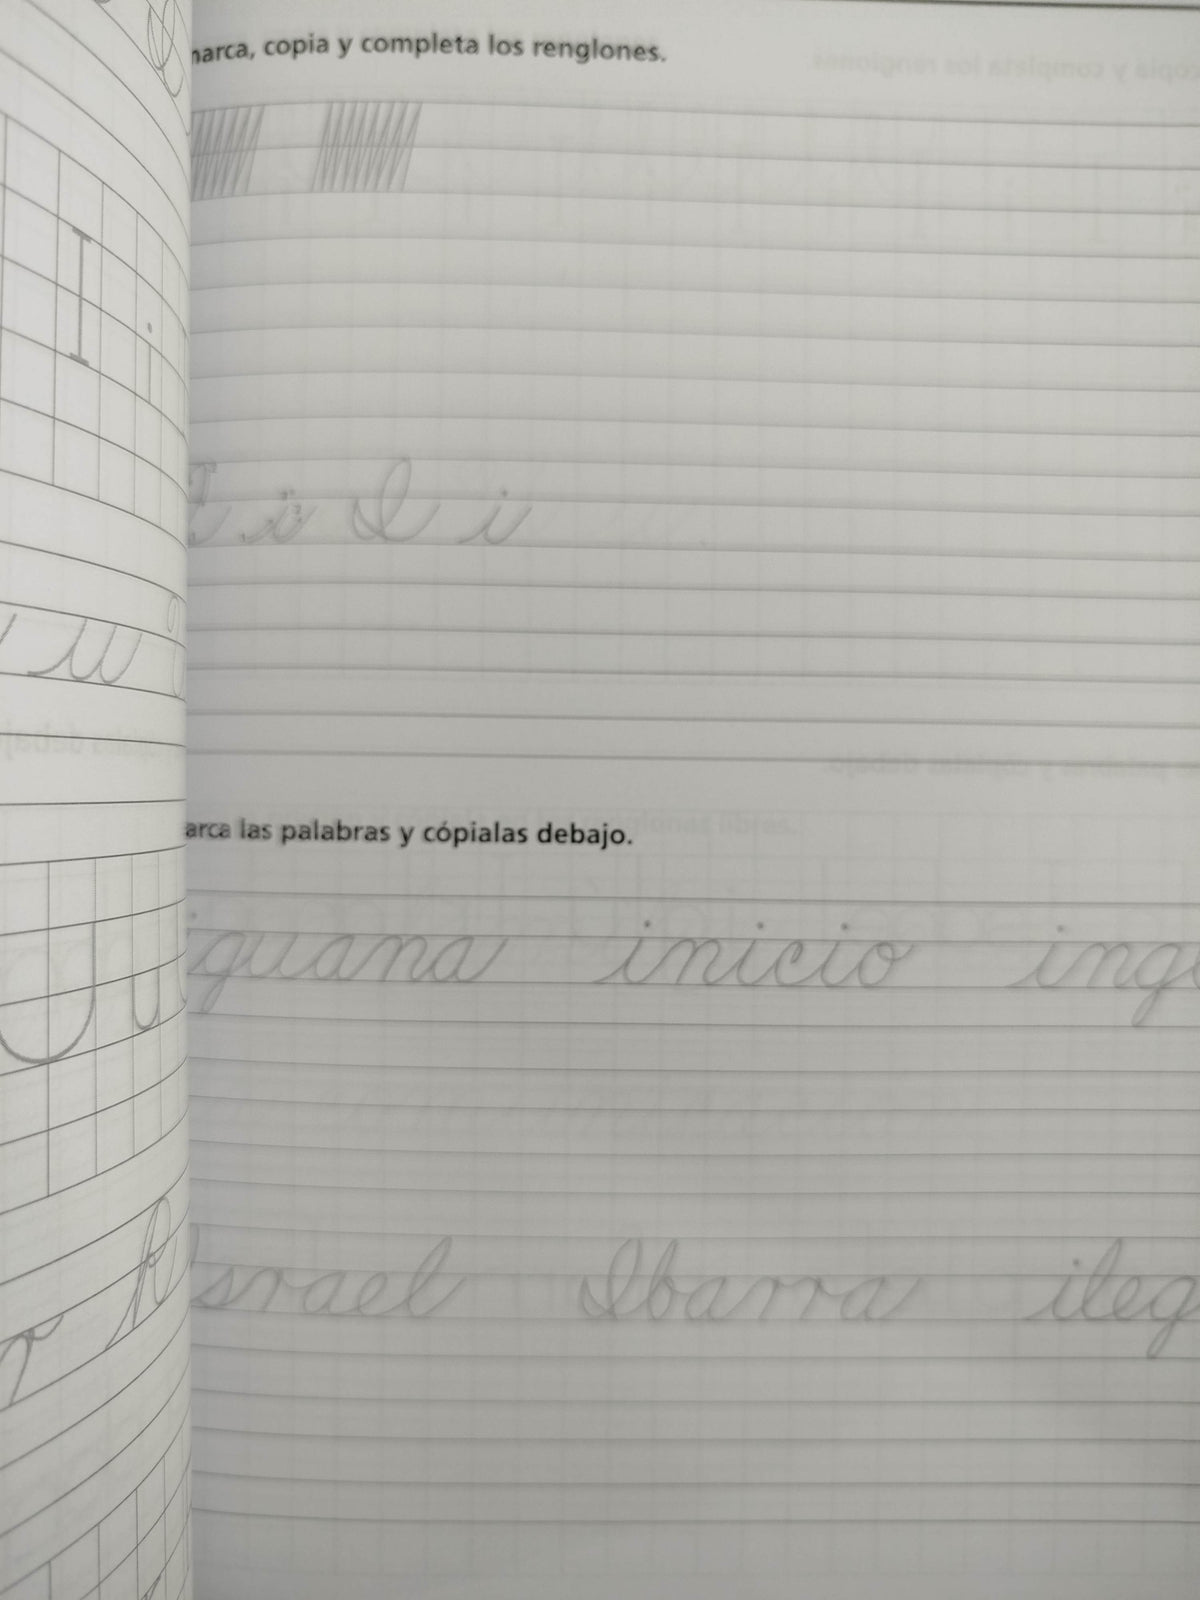 marca, copia y completa los renglones.
I i I i
marca las palabras y cópialas debajo.
iguana inicio
Israel Ibarra